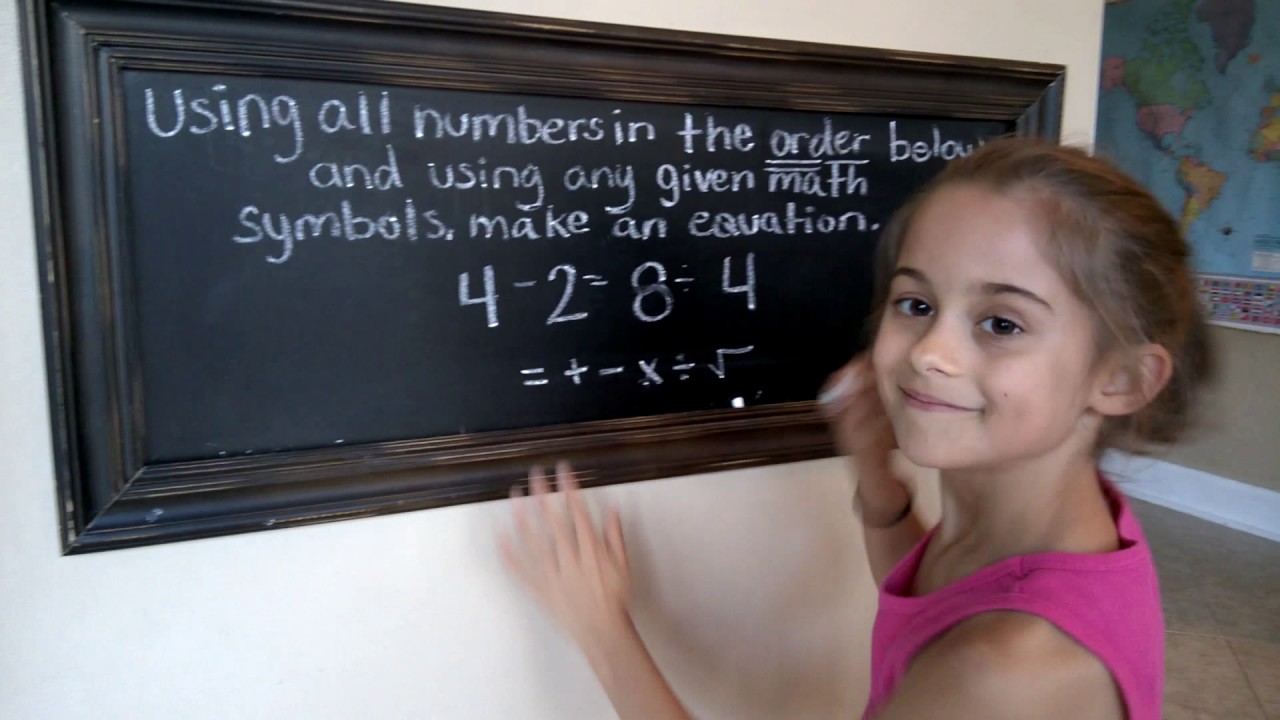 Using all numbers in the order below
and using any given math
symbols, make an equation.
4 - 2 = 8 ÷ 4
= + - x ÷ √